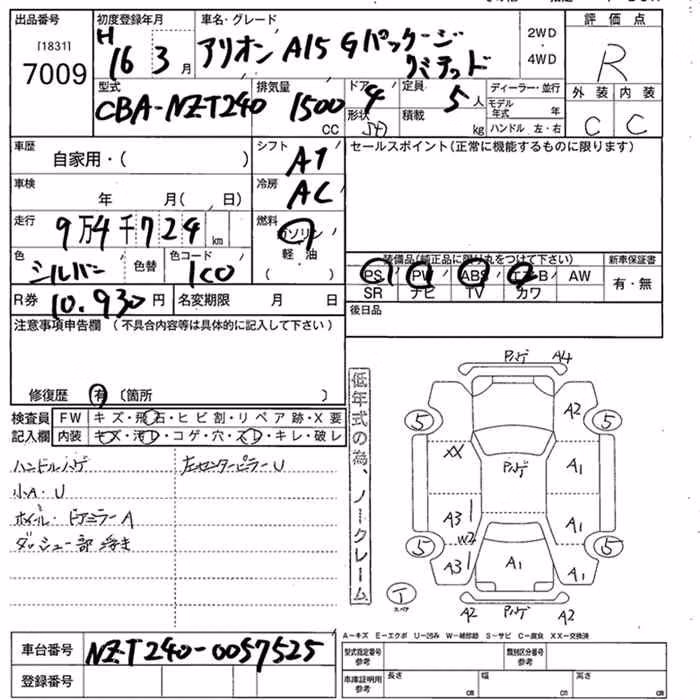 出品番号 初度登録年月 車名・グレード 評価点
[1831] H 2WD
7009 16 3月 アリオン A15 Gパッケージ リミテッド 4WD R
型式 排気量 ドア 定員 ディーラー・並行 外装 内装
CBA-NZT240 1500 CC 4 5人 モデル年式 年 C C
形状 積載 kg ハンドル 左・右
車歴 シフト セールスポイント(正常に機能するものに限ります)
自家用・( ) AT
車検 冷房
年 月( 日) AC
走行 燃料
9万4千724 km ガソリン
軽・油
( )
色 色替 色コード 装備品(純正品に限り丸をつけて下さい) 新車保証書
シルバー 1C0 PS PW ABS エアB AW 有・無
SR ナビ TV カワ
R券 10.930円 名変期限 月 日
後日品
注意事項申告欄 (不具合内容等は具体的に記入して下さい)
修復歴 有 〔箇所 〕
検査員 FW キズ・飛石・ヒビ割・リペア跡・X要
記入欄 内装 キズ・汚レ・コゲ・穴・スレ・キレ・破レ
ハンドルハゲ 左センターピラーU
小A・U
ホイル・ドアミラーA
ダッシュ一部浮き
低年式の為、ノークレーム
ｱﾝﾊﾞｹﾞ A4
A2
5 5
XX A1
A3 A1
W2
5 5
A3 A1 A1
T
スペア
A2 A2
A－キズ E－エクボ U－凹み W－補修跡 S－サビ C－腐食 XX－交換済
車台番号 NZT240-0057525
登録番号
型式指定番号 参考 類別区分番号 参考
車庫証明用 参考 長さ cm 幅 cm 高さ cm